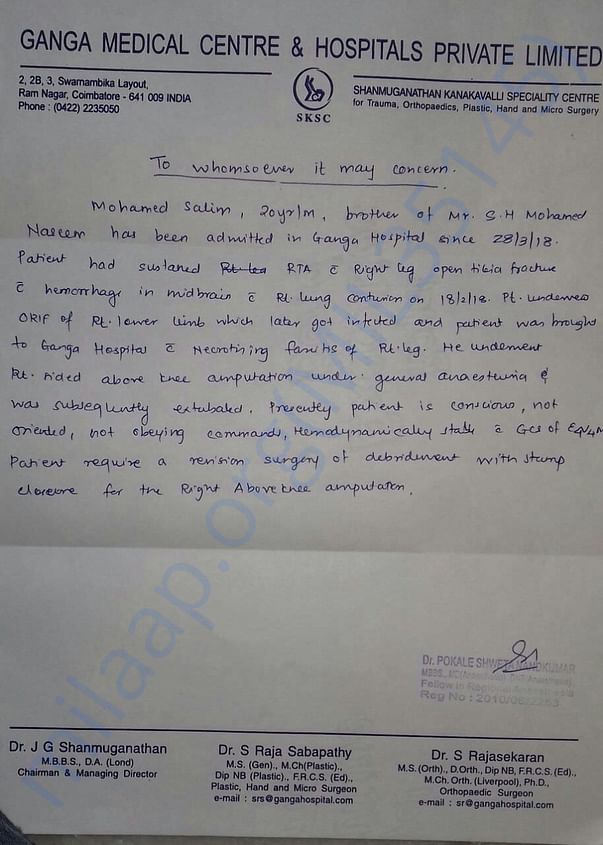 GANGA MEDICAL CENTRE & HOSPITALS PRIVATE LIMITED
2, 2B, 3, Swarnambika Layout,
Ram Nagar, Coimbatore - 641 009 INDIA
Phone : (0422) 2235050
SKSC
SHANMUGANATHAN KANAKAVALLI SPECIALITY CENTRE
for Trauma, Orthopaedics, Plastic, Hand and Micro Surgery
To whomsoever it may concern.
Mohamed Salim, 20yr/m, brother of Mr. S.H Mohamed
Naseem has been admitted in Ganga Hospital since 28/3/18.
Patient had sustaned Rt leg RTA c̄ Right leg open tibia fracture
c̄ hemorrhage in midbrain c̄ Rt. lung contusion on 18/2/18. Pt. underwent
ORIF of Rt. lower limb which later got infected and patient was brought
to Ganga Hospital c̄ Necrotizing fascitis of Rt. leg. He underwent
Rt. sided above knee amputation under general anaesthesia &
was subsequently extubated. Presently patient is conscious, not
oriented, not obeying command, Hemodynamically stable c̄ GCS of
Patient require a revision surgery of debridement with stump
closure for the Right Above knee amputation.
Dr. POKALE SHWETA NANDKUMAR
Fellow in Regional Anaesthesia
Reg No : 2010/06/2253
Dr. J G Shanmuganathan
M.B.B.S., D.A. (Lond)
Chairman & Managing Director
Dr. S Raja Sabapathy
M.S. (Gen)., M.Ch(Plastic).,
Dip NB (Plastic)., F.R.C.S. (Ed).,
Plastic, Hand and Micro Surgeon
e-mail : srs@gangahospital.com
Dr. S Rajasekaran
M.S. (Orth)., D.Orth., Dip NB, F.R.C.S. (Ed).,
M.Ch. Orth. (Liverpool), Ph.D.,
Orthopaedic Surgeon
e-mail : sr@gangahospital.com